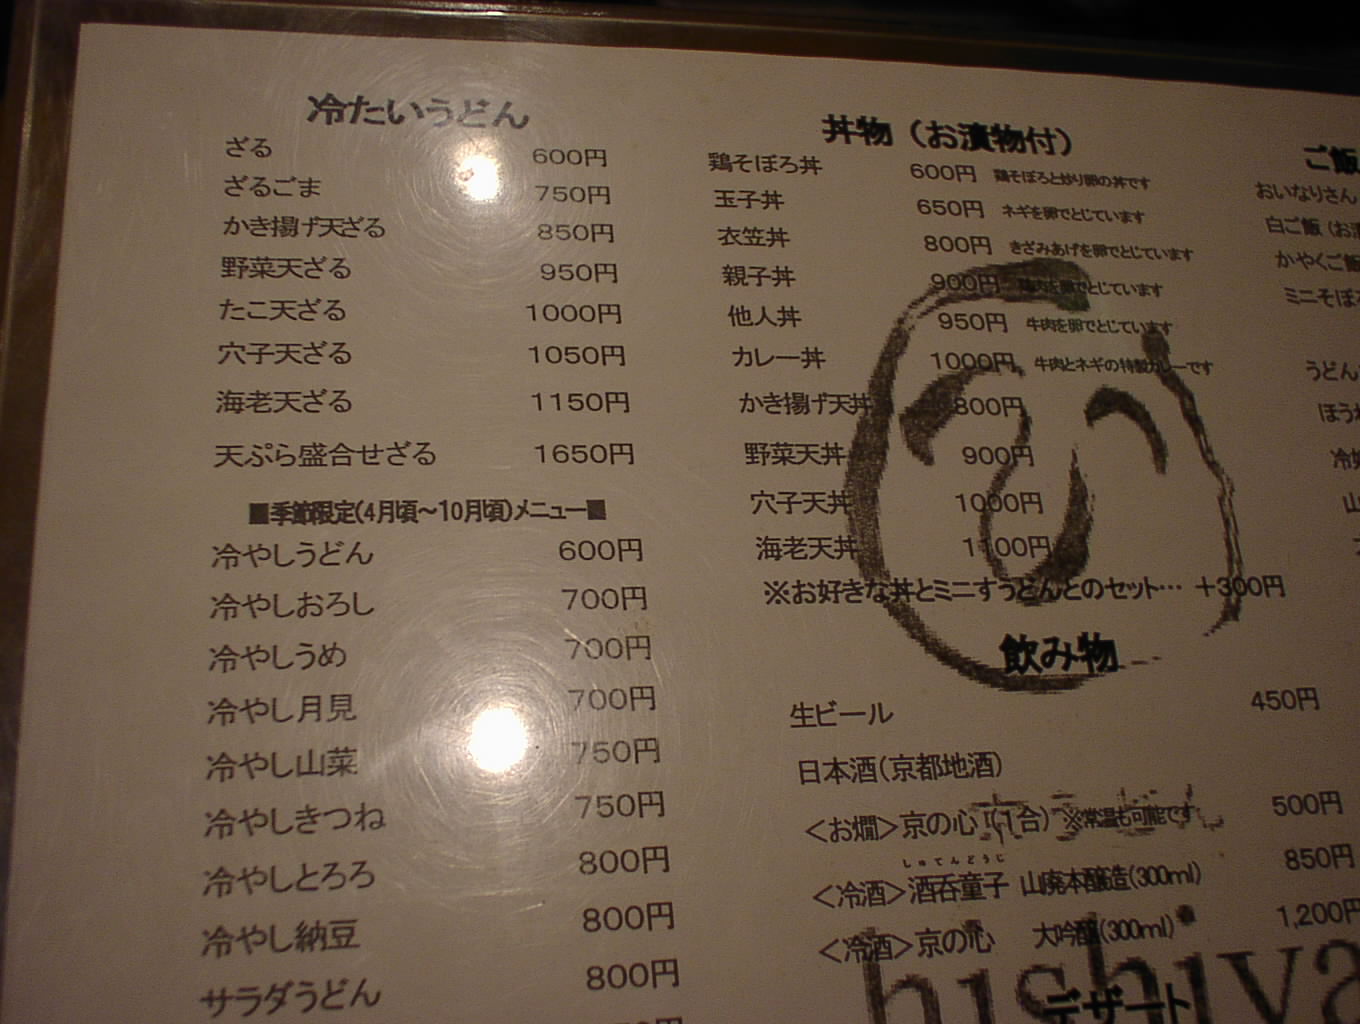 冷たいうどん
ざる 600円
ざるごま 750円
かき揚げ天ざる 850円
野菜天ざる 950円
たこ天ざる 1000円
穴子天ざる 1050円
海老天ざる 1150円
天ぷら盛合せざる 1650円
■季節限定(4月頃～10月頃)メニュー■
冷やしうどん 600円
冷やしおろし 700円
冷やしうめ 700円
冷やし月見 700円
冷やし山菜 750円
冷やしきつね 750円
冷やしとろろ 800円
冷やし納豆 800円
サラダうどん 800円
丼物（お漬物付）
鶏そぼろ丼 600円 鶏そぼろと炒り卵の丼です
玉子丼 650円 ネギを卵でとじています
衣笠丼 800円 きざみあげを卵でとじています
親子丼 900円 鶏肉を卵でとじています
他人丼 950円 牛肉を卵でとじています
カレー丼 1000円 牛肉とネギの特製カレーです
かき揚げ天丼 800円
野菜天丼 900円
穴子天丼 1000円
海老天丼 1100円
※お好きな丼とミニすうどんとのセット… ＋300円
飲み物
生ビール 450円
日本酒(京都地酒)
＜お燗＞京の心 (1合) ※常温も可能です 500円
しゅてんどうじ
＜冷酒＞酒呑童子 山廃本醸造(300ml) 850円
＜冷酒＞京の心 大吟醸(300ml) 1,200円
hishiya
デザート
ご飯
おいなりさん
白ご飯 (お漬
かやくご飯
ミニそぼろ
うどん
ほうれ
冷奴
山